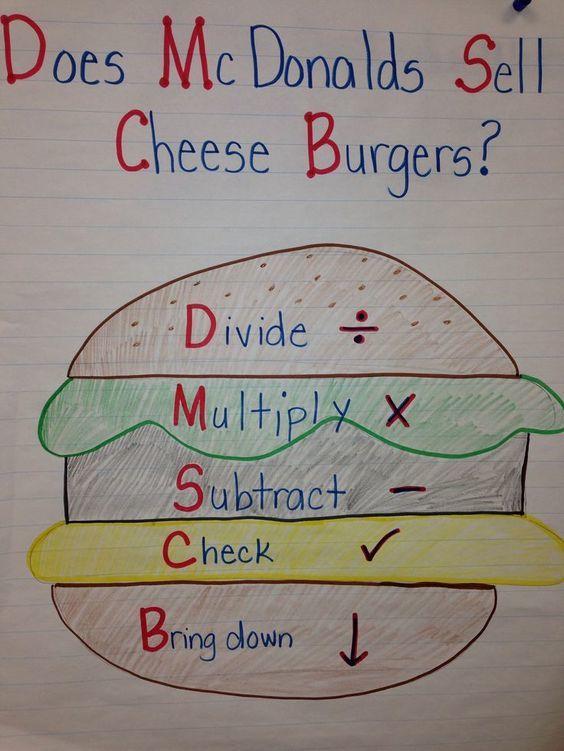 Does McDonalds Sell
Cheese Burgers?
Divide ÷
Multiply x
Subtract -
Check ✓
Bring down ↓